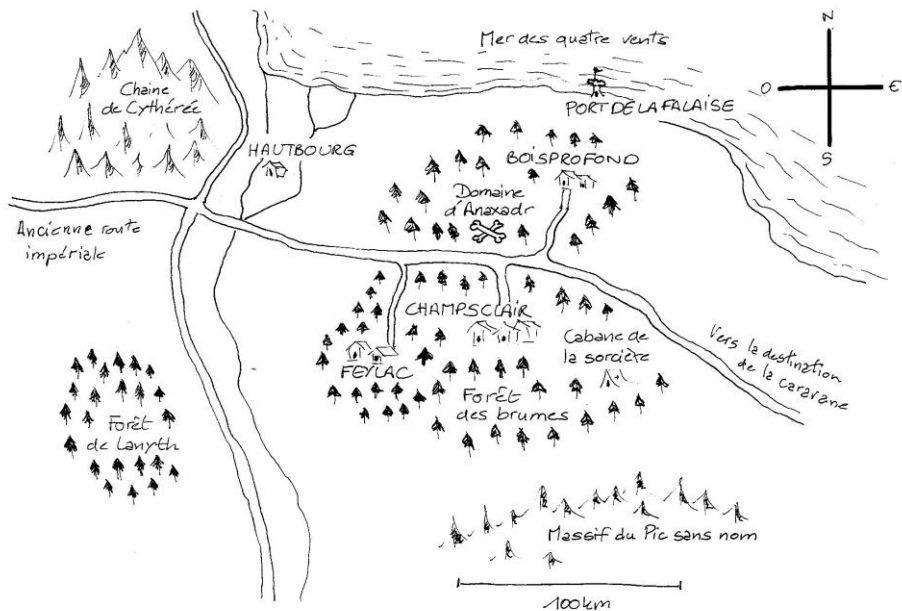 Mer des quatre vents
N
O
E
S
Chaine
de Cythérée
PORT DE LA FALAISE
HAUTBOURG
BOISPROFOND
Domaine
d'Anaxadr
Ancienne route
impériale
CHAMPSCLAIR
Cabane de
la sorcière
Vers la destination
de la caravane
FEYLAC
Forêt
des brumes
Forêt
de Lanyth
Massif du Pic sans nom
100km